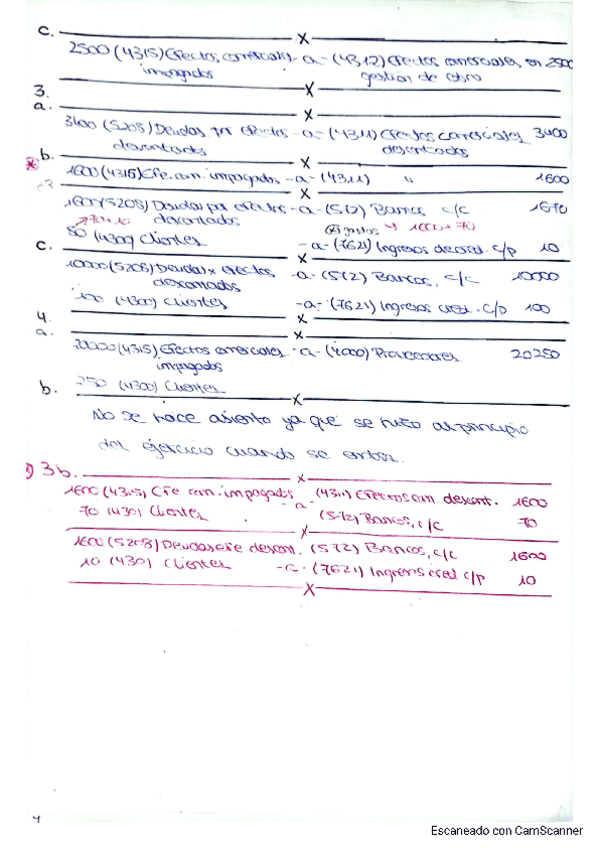 c. X
2500 (4315) Efectos comerciales -a- (4312) Efectos comerciales en 2500
impagados gestión de cobro
X
3.
a. X
3400 (5208) Deudas por efectos -a- (4311) Efectos comerciales 3400
descontados descontados
b. X
1600 (4315) Efe. com. impagados -a- (4311) " 1600
X
1600 (5208) Deudas por efectos -a- (572) Bancos c/c 1670
→ 70+10 descontados gastos 1600+70
80 (4300) Clientes -a- (7621) Ingresos de cred. c/p 10
c. X
10000 (5208) Deudas x efectos -a- (572) Bancos, c/c 10000
descontados
100 (4300) Clientes -a- (7621) Ingresos cred. c/p 100
4. X
a. X
20000 (4315) Efectos comerciales -a- (4000) Proveedores 20250
impagados
250 (4300) Clientes
b. X
No se hace asiento ya que se hizo al principio
del ejercicio cuando se
3b. X
1600 (4315) Efe com. impagados -a- (4311) Efectos com. descont. 1600
70 (430) Clientes (572) Bancos, c/c 70
X
1600 (5208) Deudas efe descont. (572) Bancos, c/c 1600
10 (430) Clientes -a- (7621) Ingresos cred c/p 10
X
4
Escaneado con CamScanner